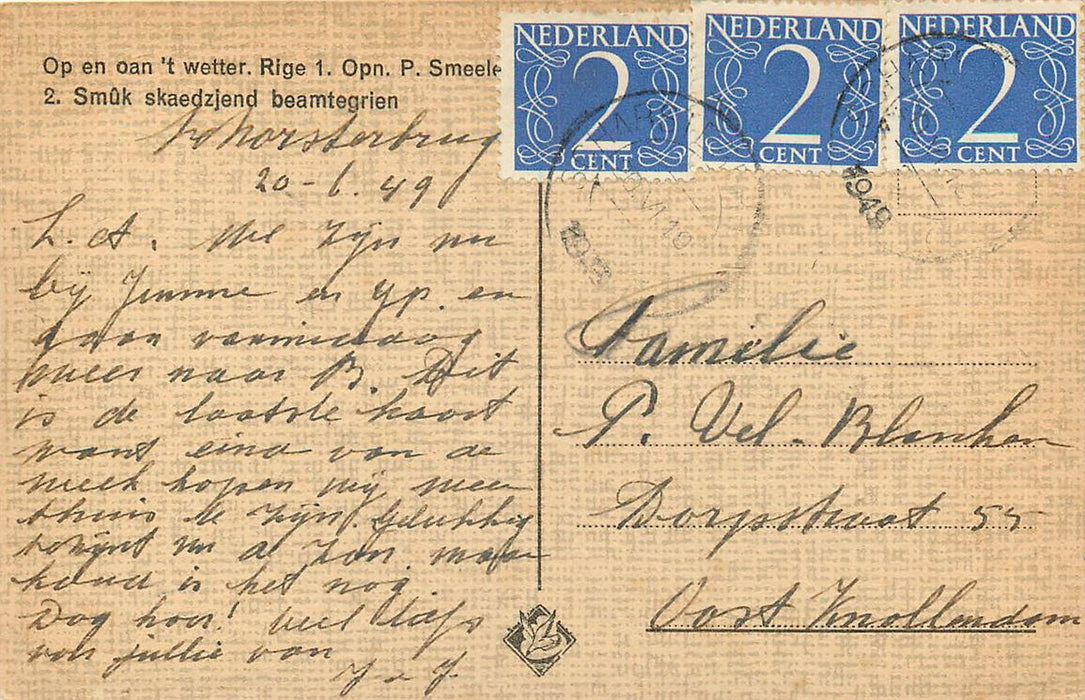 Op en oan 't wetter. Rige 1. Opn. P. Smeele
2. Smûk skaedzjend beamtegrien
NEDERLAND
2
CENT
NEDERLAND
2
CENT
NEDERLAND
2
CENT
1949
Schorsterbrug
20-6.49
L.A. We zijn nu
bij Jimme en Yp. en
gaan vanmiddag
weer naar B. Dit
is de laatste kaart
want eind van de
week hopen wij weer
thuis te zijn. Gelukkig
schijnt nu de zon. maar
koud is het nog.
Dag hoor! veel liefs
van jullie van
J. J.
Familie
P. Vel-Blanken
Dorpstraat 55
Oost Knollendam